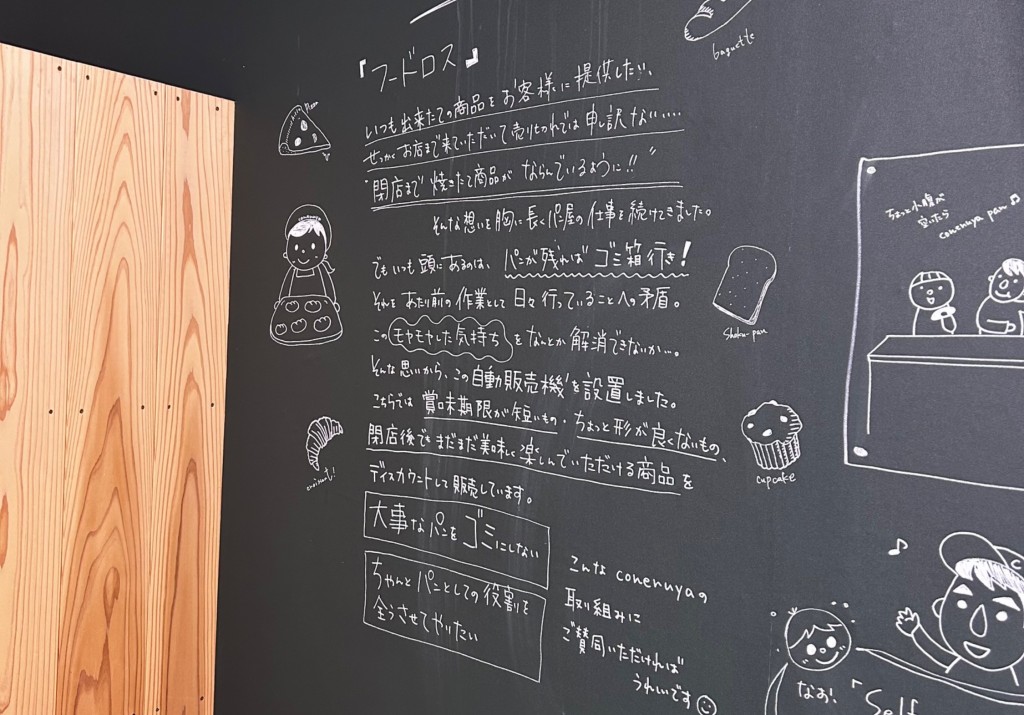 baguette
『フードロス』
Pizza
いつも出来たての商品をお客様に提供したい、
せっかくお店まで来ていただいて売り切れでは申し訳ない・・・・
"閉店まで焼きたて商品がならんでいるように!!"
そんな想いを胸に長くパン屋の仕事を続けてきました。
でもいつも頭にあるのは、パンが残ればゴミ箱行き!
それをあたり前の作業として日々行っていることへの矛盾。
このモヤモヤした気持ちをなんとか解消できないか…。
そんな思いから、この自動販売機を設置しました。
こちらでは賞味期限が短いもの・ちょっと形が良くないもの、
閉店後でもまだまだ美味しく楽しんでいただける商品を
ディスカウントして販売しています。
大事なパンをゴミにしない
ちゃんとパンとしての役割を
全うさせてやりたい
こんなconenuyaの
取り組みに
ご賛同いただければ
うれしいです
conenuya
Shoku-pan
croissant!
cupcake
ちょっと小腹が
空いたら
conenuya pan♫
なお!
「Self
C